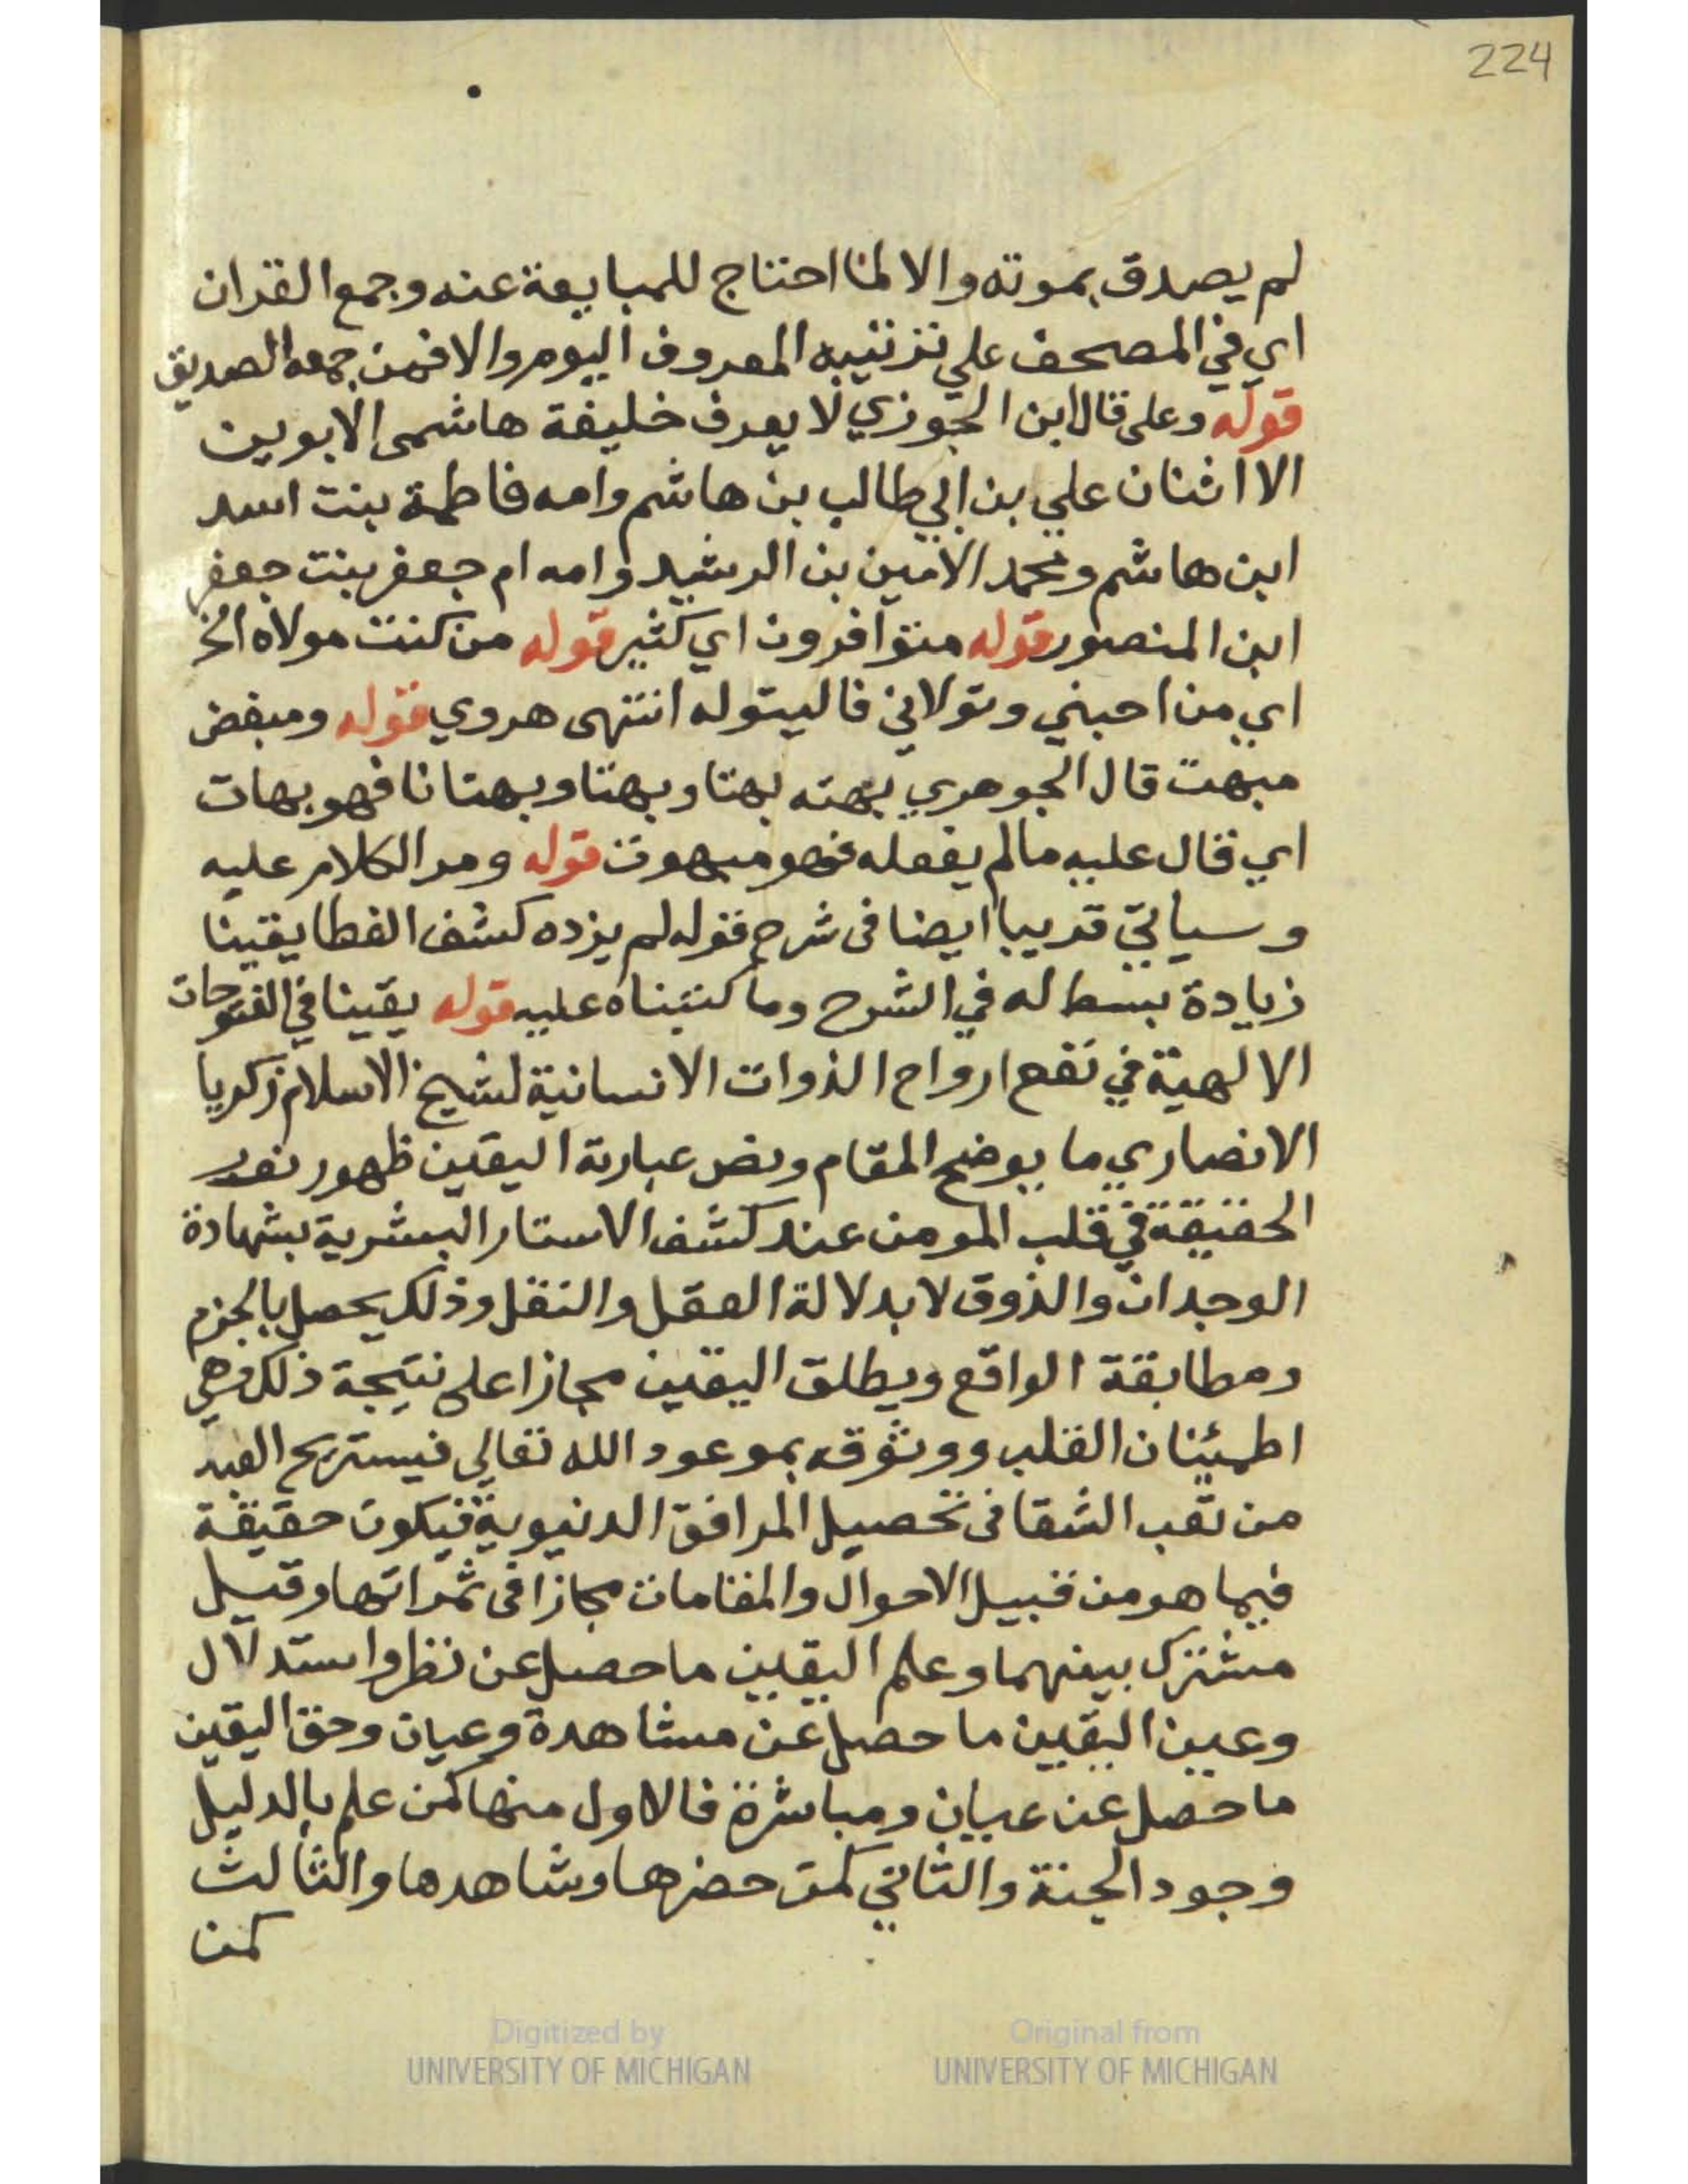 224
لم يصدق بموته والا لما احتاج للمبايعة عنه وجمع القران
اي في المصحف علي ترتيبه المعروف اليوم والا فمن جمعه الصديق
قوله وعلى قال ابن الجوزي لا يعرف خليفة هاشمى الابوين
الا اثنان علي بن ابي طالب بن هاشم وامه فاطمة بنت اسد
ابن هاشم ومحمد الامين بن الرشيد وامه ام جعفر بنت جعفر
ابن المنصور قوله متوافرون اي كثير قوله من كنت مولاه الخ
اي من احبني وتولاني فاليتوله انتهى هروي قوله ومبغض
مبهت قال الجوهري بهته بهتا وبهتا وبهتانا فهو بهات
اي قال عليه مالم يفعله فهو مبهوت قوله ومر الكلام عليه
وسياتي قريبا ايضا فى شرح قوله لم يزده كشف الغطا يقينا
زيادة بسط له في الشرح وما كتبناه عليه قوله يقينا في الفتوحات
الالهية في نفع ارواح الذوات الانسانية لشيخ الاسلام زكريا
الانصاري ما يوضح المقام ونص عبارته اليقين ظهور نور
الحقيقة في قلب المومن عند كشف الاستار البشرية بشهادة
الوجدان والذوق لا بدلالة العقل والنقل وذلك يحصل بالجزم
ومطابقة الواقع ويطلق اليقين مجازا على نتيجة ذلك وهي
اطمئنان القلب ووثوقه بموعود الله تعالي فيستريح العبد
من تعب الشقا فى تحصيل المرافق الدنيوية فيكون حقيقة
فيما هو من قبيل الاحوال والمقامات مجازا فى ثمراتها وقيل
مشترك بينهما وعلم اليقين ما حصل عن نظر واستدلال
وعين اليقين ما حصل عن مشاهدة وعيان وحق اليقين
ما حصل عن عيان ومباشرة فالاول منها كمن علم بالدليل
وجود الجنة والثاني كمن حضرها وشاهدها والثالث
كمن
Digitized by
UNIVERSITY OF MICHIGAN
Original from
UNIVERSITY OF MICHIGAN